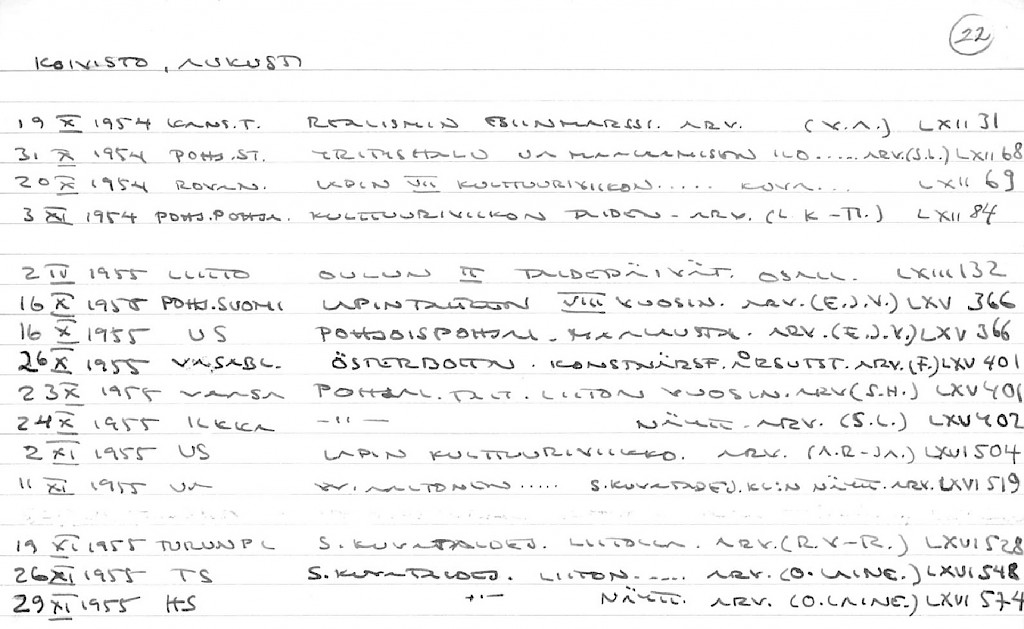 22
KOIVISTO, AUKUSTI
19 X 1954 KANS.T. REALISMIN ARV. (V.A.) LXII 31
31 X 1954 POHJ.ST. YRITYSHALU JA MAALAAMISEN ILO..... ARV.(S.L.) LXII 68
20 X 1954 ROVAN. LAPIN VII KULTTUURIVIIKON..... KUVA... LXII 69
3 XI 1954 POHJ.POHJA. KULTTUURIVIIKON TAIDEN-ARV. (L K-TI.) LXII 84
2 IV 1955 LIITTO OULUN II TAIDEPÄIVÄT. OSALL. LXIII 132
16 X 1955 POHJ.SUOMI LAPIN VIII VUOSIN. ARV.(E.J.V.) LXV 366
16 X 1955 US POHJOISPOHJAL. MAALAUSTA. ARV.(E.J.V.) LXV 366
26 X 1955 VASABL. ÖSTERBOTTN. KONSTNÄRSF. ÅRSUTST. ARV.(F.) LXV 401
23 X 1955 VAASA POHJAL.TAIT. LIITON VUOSIN. ARV(S.H.) LXV 401
24 X 1955 ILKKA -"- NÄYTT.-ARV. (S.L.) LXV 402
2 XI 1955 US LAPIN KULTTUURIVIIKKO. ARV. (A.R-JA.) LXVI 504
11 XI 1955 UA W. AALTONEN..... S.KUVATAIDEJ.KL:N NÄYTT.ARV. LXVI 519
19 XI 1955 TURUNPL S.KUVATAIDEJ. LIITOLLA. ARV.(R.V-R.) LXVI 528
26 XI 1955 TS S.KUVATAIDEJ. LIITON..... ARV.(O.LAINE.) LXVI 548
29 XI 1955 HS -"- NÄYTT. ARV. (O.LAINE.) LXVI 574